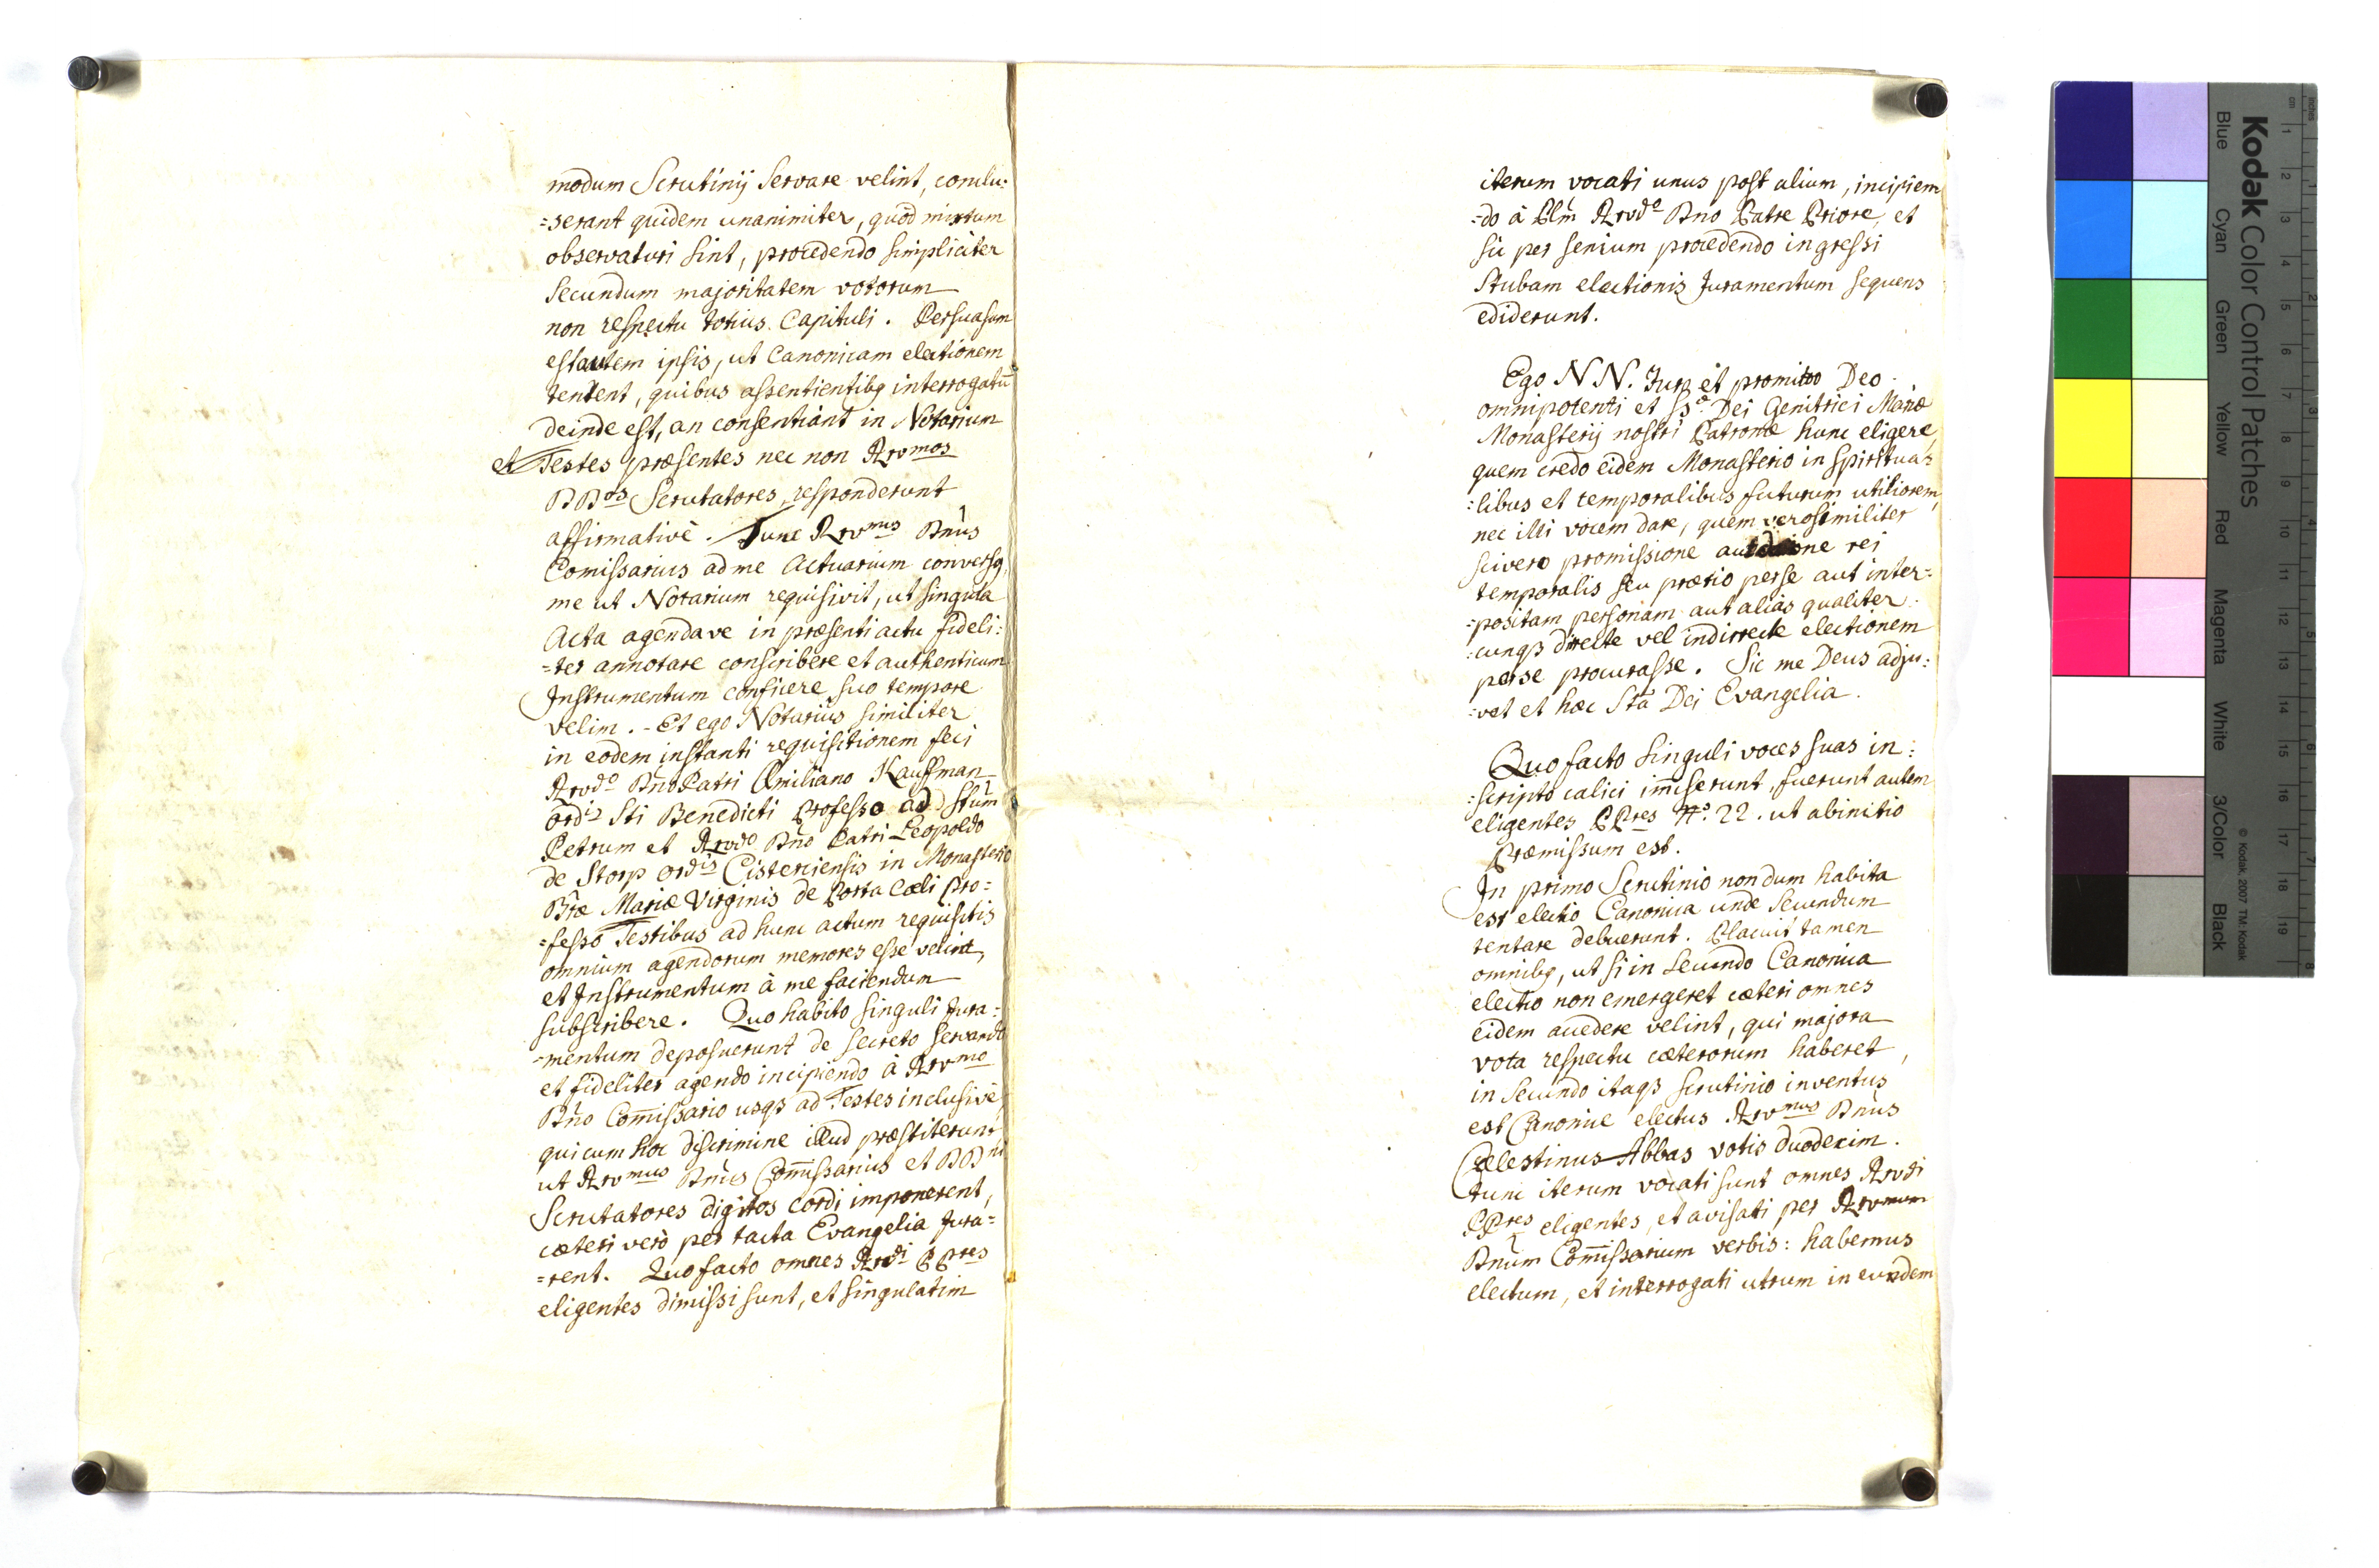 modum Scrutinij Servare velint, conclu:
=serant quidem unanimiter, quod mixtum
observaturi sint, procedendo simpliciter
Secundum majoritatem votorum
non respectu totius Capituli. Persuasum
est autem ipsis, ut Canonicam electionem
tentent, quibus assentientibq interrogatū
deinde est, an consentiant in Notarium
et Testes præsentes nec non Rvmos
DDos Scrutatores, responderunt
affirmativè. Tunc Rvmus Dnus
Comissarius ad me Actuarium conversq,
me ut Notarium requisivit, ut singula
Acta agendave in præsenti actu fideli:
=ter annotare conscribere et authenticum
Instrumentum conficere suo tempore
velim. - Et ego Notarius similiter
in eodem instanti requisitionem feci
Rvdo Dno Patri Æmiliano Kauffman
ordis Sti Benedicti Professo ad Stum
Petrum et Rvdo Dno Patri Leopoldo
de Storp ordis Cisterciensis in Monasterio
Btæ Mariæ Virginis de Porta Cæli Pro:
=fesso Testibus ad hunc actum requisitis
omnium agendorum memores esse velint,
et Instrumentum à me faciendum
subscribere. Quo habito singuli Jura:
=mentum deposuerunt de secreto servando
et fideliter agendo incipiendo à Rvmo
Dno Com̄issario usqȝ ad Testes inclusivè,
qui cum hoc discrimine illud præstiterunt
ut Rvmus Dnus Com̄issarius et DDni
Scrutatores digitos cordi imponerent,
cæteri verò per tacta Evangelia Jura=
=rent. Quo facto omnes Rvdi PPres
eligentes dimissi sunt, et singulatim
iterum vocati unus post alium, incipiem
=do à Plm Rvdo Dno Patre Priore, et
sic per senium procedendo ingressi
Stubam electionis Juramentum sequens
ediderunt.
Ego N N. Juro et promitto Deo
omnipotenti et SSæ Dei Genitrici Mariæ
Monasterij nostri Patronæ hunc eligere,
quem credo eidem Monasterio in Spiritua:
:libus et temporalibus futurum utiliorem,
nec illi vocem dare, quem verosimiliter
scivero promissione aut datione rei
temporalis seu prætio per se aut inter=
=positam personam aut alias qualiter
:cunqȝ directe vel indirecte electionem
per se procurasse. Sic me Deus adju:
:vet et hæc Sta Dei Evangelia.
Quo facto singuli voces suas in:
:scripto calici im̄iserunt, fuerunt autem
eligentes PPres No: 22. ut ab initio
Præmissum est.
In primo Scrutinio nondum habita
est electio Canonica unde Secundum
tentare debuerunt. Placuit tamen
omnibq, ut si in Secundo Canonica
electio non emergeret cæteri omnes
eidem accedere velint, qui majora
vota respectu cæterorum haberet,
in Secundo itaqȝ scrutinio inventus
est Canonice electus Rvmus Dnus
Cælestinus Abbas votis duodecim.
tunc iterum vocati sunt omnes Rvdi
PPres eligentes, et avisati per Rvmum
Dnum Com̄issarium verbis: habemus
electum, et interrogati utrum in eundem
Kodak Color Control Patches
Blue Cyan Green Yellow Red Magenta White 3/Color Black
© Kodak, 2007 TM: Kodak
inches 1 2 3 4 5 6 7 8
cm 1 2 3 4 5 6 7 8 9 10 11 12 13 14 15 16 17 18 19